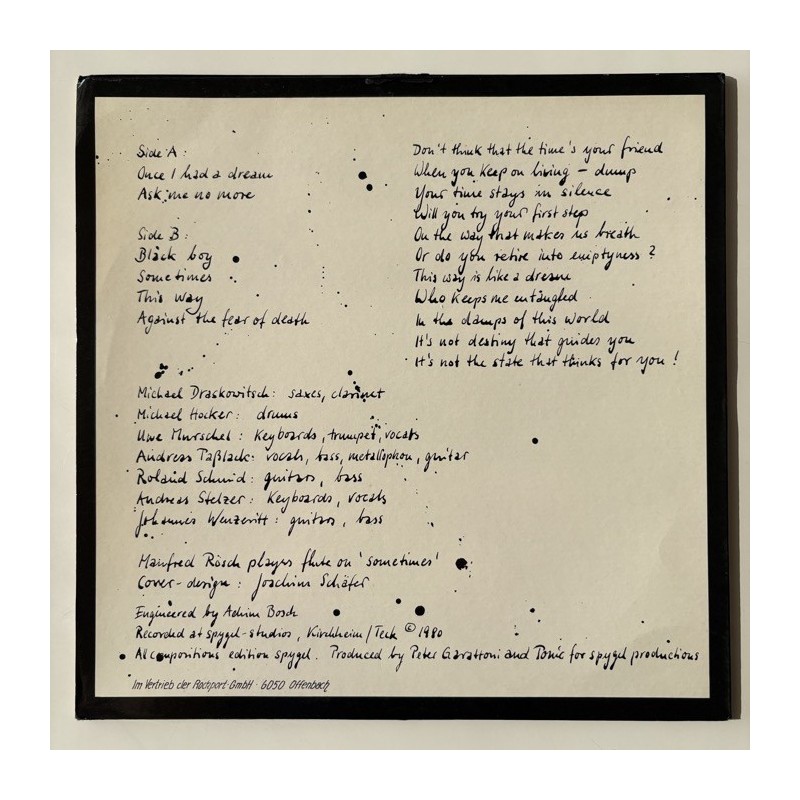 Side A:
Once I had a dream
Ask me no more
Side B:
Black boy
Sometimes
This Way
Against the fear of death
Don't think that the time's your friend
When you keep on living – dump
Your time stays in silence
Will you try your first step
On the way that makes us breath
Or do you retire into emptyness?
This way is like a dream
Who keeps me entangled
In the damps of this world
It's not destiny that guides you
It's not the state that thinks for you!
Michael Draskowitsch: saxes, clarinet
Michael Hocker: drums
Uwe Murschel: keyboards, trumpet, vocals
Andreas Taßlack: vocals, bass, metallophon, guitar
Roland Schmid: guitars, bass
Andreas Stelzer: keyboards, vocals
Johannes guitars, bass
Manfred Rösch plays flute on 'sometimes'
Cover-design: Joachim Schäfer
Engineered by Achim Bosch
Recorded at spygel-studios, Kirchheim/Teck © 1980
All compositions edition spygel. Produced by Peter Garattoni and Tonic for spygel productions
Im Vertrieb der Rockport-GmbH · 6050 Offenbach